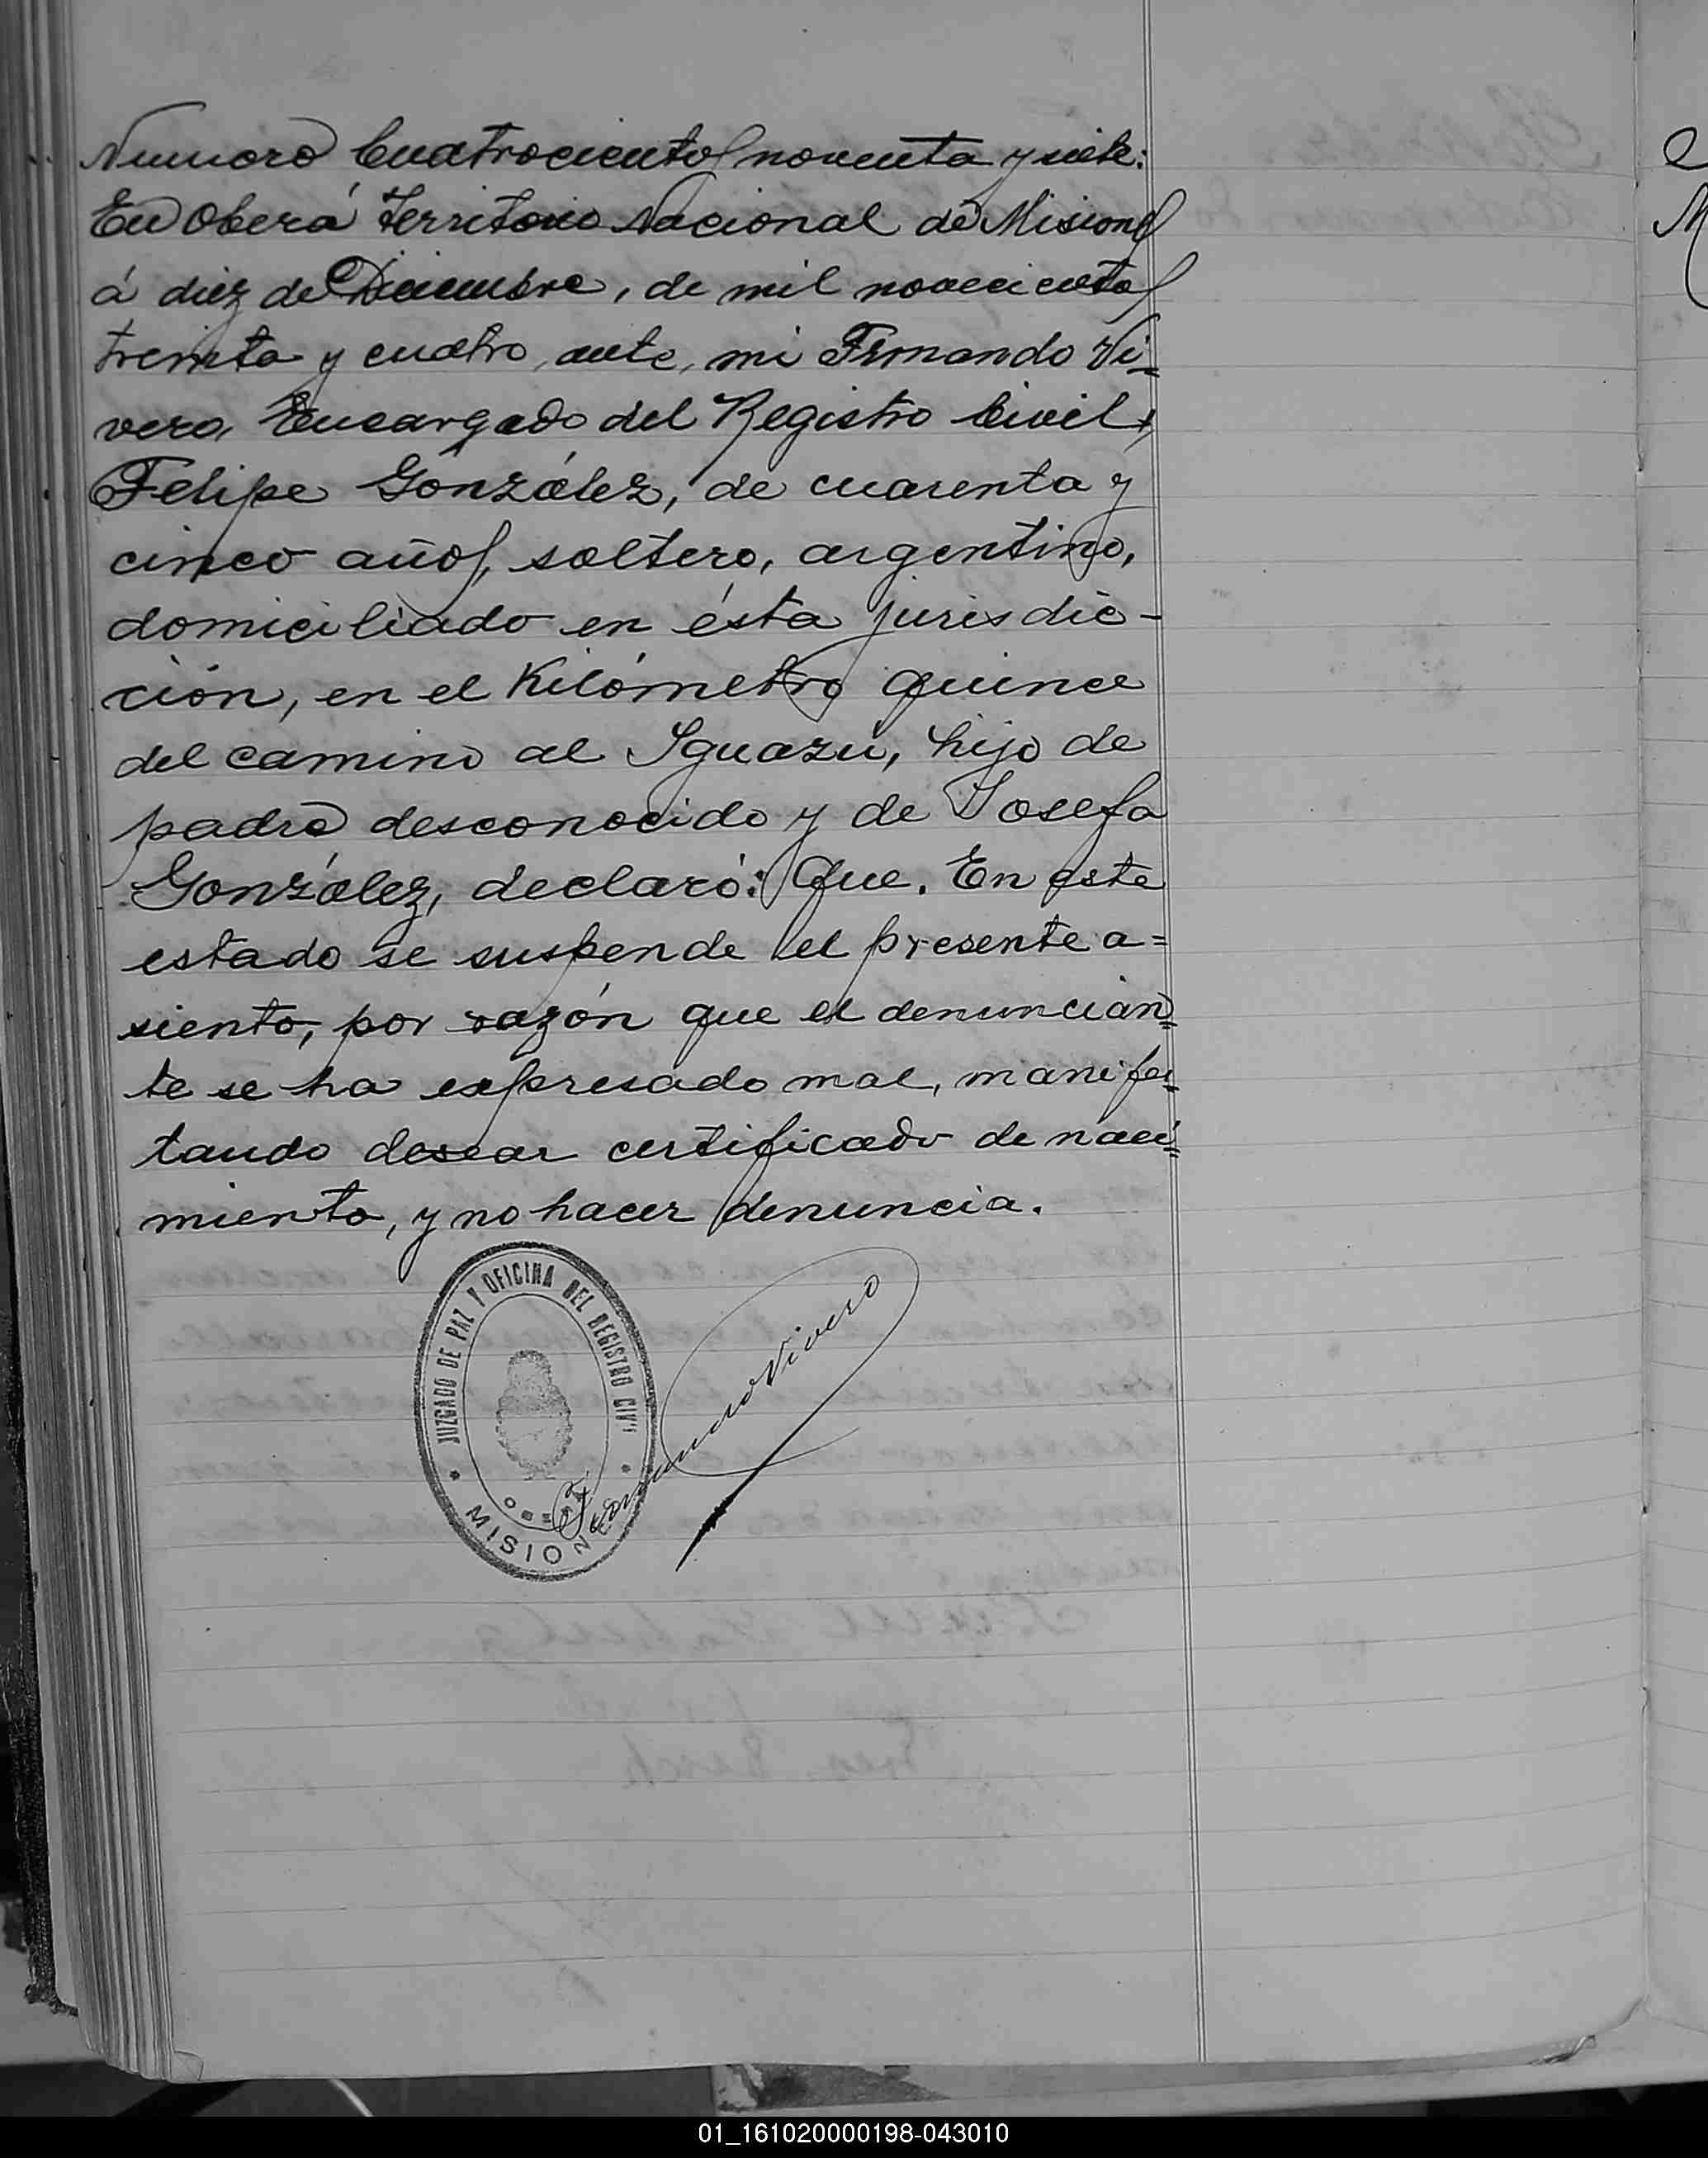 Numero Cuatrocientos noventa y siete:
En Oberá Territorio Nacional de Misiones
á diez de Diciembre, de mil novecientos
treinta y cuatro, ante, mi Fernando Vi=
vero, Encargado del Registro Civil,
Felipe González, de cuarenta y
cinco años, soltero, argentino,
domiciliado en ésta jurisdic-
ción, en el Kilómetro quince
del camino al Iguazú, hijo de
padre desconocido y de Josefa
González, declaró: Que. En este
estado se suspende el presente a=
siento, por razón que el denuncian=
te se ha expresado mal, manifes=
tando desear certificado de naci=
miento, y no hacer denuncia.
JUZGADO DE PAZ Y OFICINA DEL REGISTRO CIVIL
MISIONES
Fernando Vivero
01_161020000198-043010